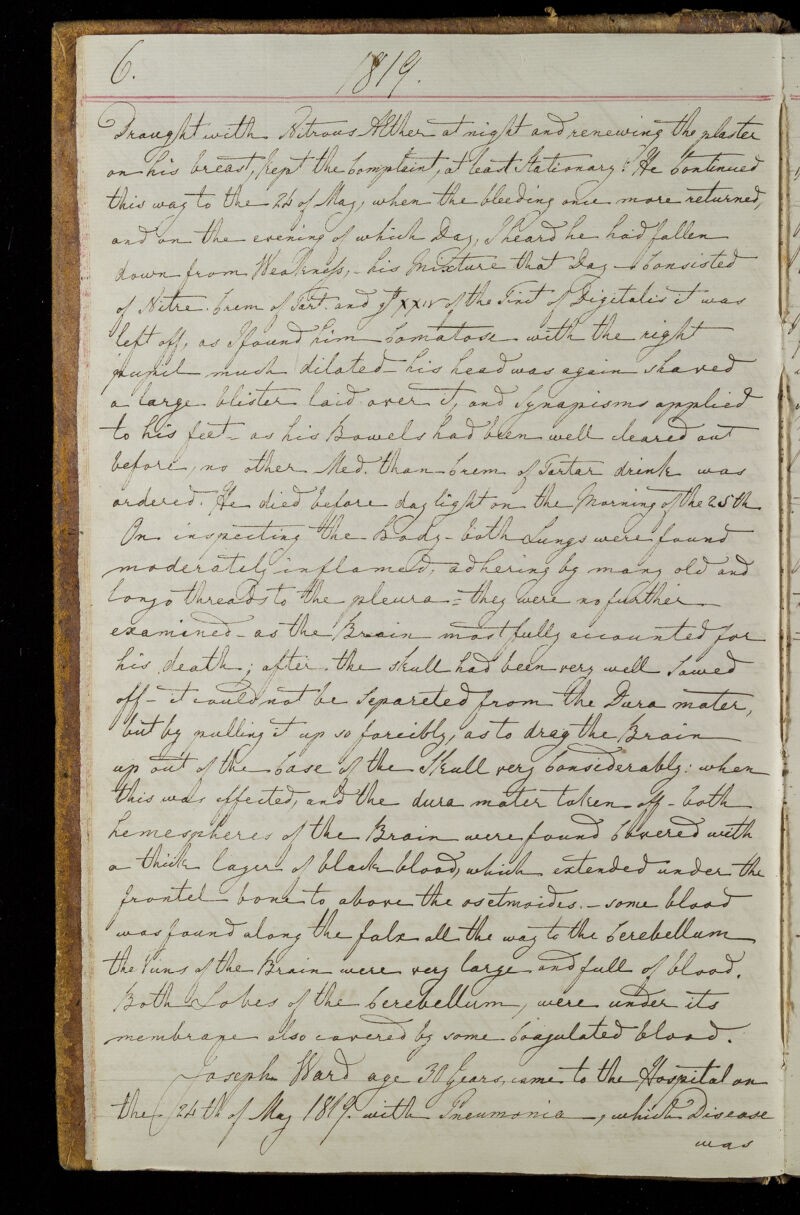 6. 1819.
Draught with Nitrous Æther at night and renewing the plaster
on his breast, kept the Complaint, at least Stationary: He Continued
this way to the 24 of May, when the bleeding once more returned,
and on the evening of which Day, I heard he had fallen
down from Weakness, - his Mixture that Day - Consisted
of Nitre. Crem. of Tart. and gt XXIV of the Tinct of Digitalis it was
left off, as I found him Comatose with the right
pupil much dilated - his head was again shaved
a large blister laid over it, and Synapisms applied
to his feet - as his Bowels had been well cleared out
before, no other Med. than Crem of Tartar drink was
ordered. He died before day light on the Morning of the 25th
On inspecting the Body - both Lungs were found
moderately inflamed, adhering by many old and
long threads to the pleura - they were no further
examined - as the Brain most fully accounted for
his death; after the skull had been very well Sawed
off - it could not be Separeted from the Dura mater,
but by pulling it up so forcibly, as to drag the Brain
up out of the base of the Skull very Considerably: when
this was effected, and the dura mater taken off - both
hemespheres of the Brain were found Covered with
a thick layer of black blood, which extended under the
frontel bone to above the os etmoides. - some blood
was found along the falx all the way to the Cerebellum
the Viens of the Brain were very large and full of blood.
Both Lobes of the Cerebellum, were under its
membrane also covered by some Coagulated blood.
Joseph Ward age 30 Years, came to the Hospital on
the 24th of May 1819. with Pneumonia -, which Disease
was